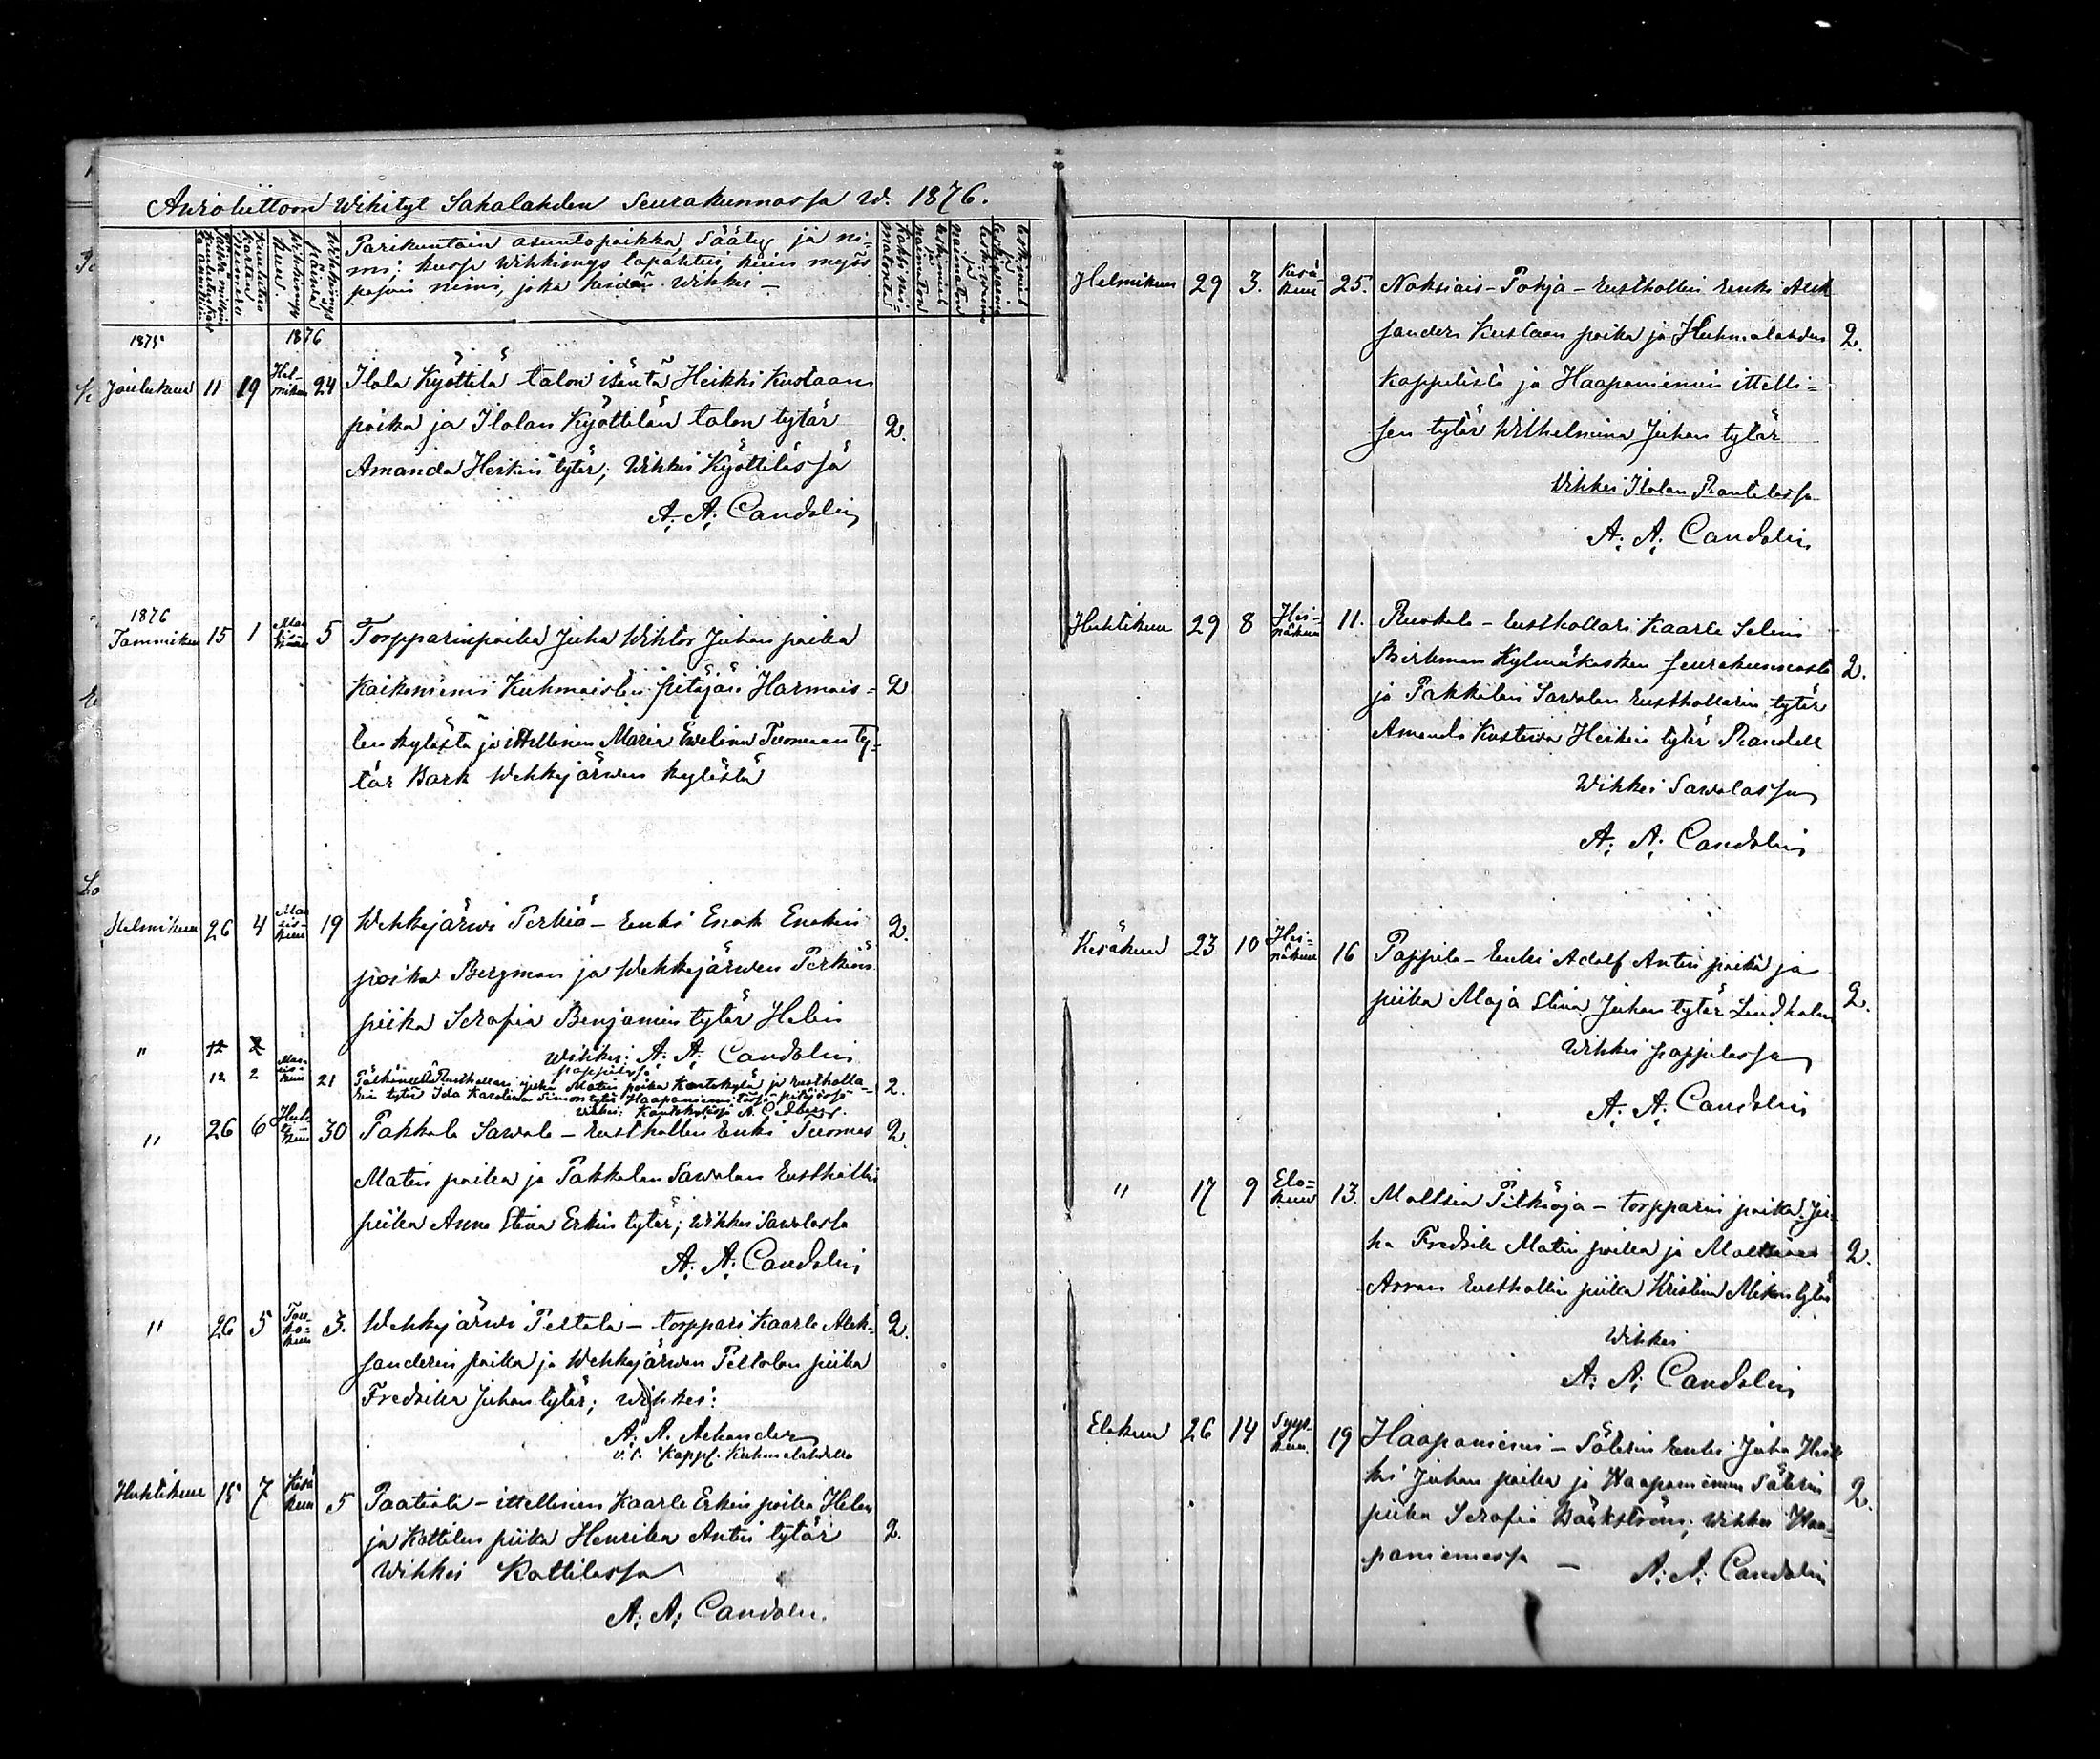 Awioliittoon Wihityt Sahalahden Seurakunnassa W. 1876.
Parikuntain asuntopaikka, Sääty ja ni-
mi: kussa Wihkimys tapahtui kuin myös
papin nimi, joka heidän Wihki —
1875 1876
Joulukuun 11 19 Hel-mikuu 24 Ilola Kyöttilä talon isäntä Heikki Kustaan
poika ja Ilolan Kyöttilän talon tytär 2.
Amanda Heikin tytär; Wihki Kyöttilässä
A. A. Candolin
1876
Tammikuu 15 1 Maaliskuu 5 Torpparinpoika Juha Wihtor Juhan poika
Kaikoniemi Kuhmoisten pitäjän Harmois- 2
ten kylästä ja ittellinen Maria Ewelina Tuomaan ty-
tär Bark Wehkajärwen kylästä
Helmikuu 26 4 Maaliskuu 19 Wehkajärwi Perkiö – Renki Enok Enokin 2.
poika Bergman ja Wehkajärwen Perkiön
piika Serafia Benjamin tytär Helin
" 12 2 Wihki: A. A. Candolin
pappilassa
12 2 Maaliskuu 21 Pälkäneeltä Rusthollari Juha Matin poika Kantokylä ja rustholla- 2.
rin tytär Ida Karolina Simon tytär Haapaniemi tässä pitäjässä
Wihki: Kantokylässä A. Cedberg.
" 26 6 Huhtikuu 30 Pakkala Sawola – Rusthollin Renki Tuomas 2.
Matin poika ja Pakkalan Sawolan Rusthollin
piika Anna Stina Erkin tytär; Wihki Sawolassa
A. A. Candolin
" 26 5 Tou-ko-kuu 3. Wehkajärwi Peltola – torppari Kaarle Alek- 2.
sanderin poika ja Wehkajärwen Peltolan piika
Fredrika Juhan tytär; Wihki:
A. A. Achander
v. t. Kappl. Kuhmalahdella
Huhtikuu 15 7 Kesäkuu 5 Paatiala – ittellinen Kaarle Erkin poika Helen
ja Kottilan piika Henrika Antin tytär 2.
Wihki Kottilassa
A. A. Candolin.
Helmikuu 29 3. Kesä-kuu 25. Nakkiais-Pohja – Rusthollin renki Alek
sanderi Kustaan poika ja Kuhmalahden 2.
Kappelista ja Haapaniemen ittelli-
sen tytär Wilhelmina Juhan tytär
Wihki Ilolan Rantalassa
A. A. Candolin
Huhtikuu 29 8 Hei-näkuu 11. Ruokola – Rusthollari Kaarle Selim
Birkman Kylmäkosken seurakunnasta 2.
ja Pakkalan Sawolan Rusthollarin tytär
Amanda Kustawa Heikin tytär Randell
Wihki Sawolassa
A. A. Candolin
Kesäkuu 23 10 Hei-näkuu 16 Pappila – Renki Adolf Antin poika ja
piika Maja Stina Juhan tytär Lindholm 2.
Wihki pappilassa
A. A. Candolin
" 17 9 Elo-kuu 13. Moltsia Pitkäoja – torpparin poika Ju-
ha Fredrik Matin poika ja Moltsian 2.
Arran Rusthollin piika Kristina Mikon tytär
Wihki
A. A. Candolin
Elokuu 26 14 Syys-kuu 19 Haapaniemi – Säterin Renki Juha Heik
ki Juhan poika ja Haapaniemen Säterin 2.
piika Serafia Bäckström; Wihki Haa-
paniemessä — A. A. Candolin